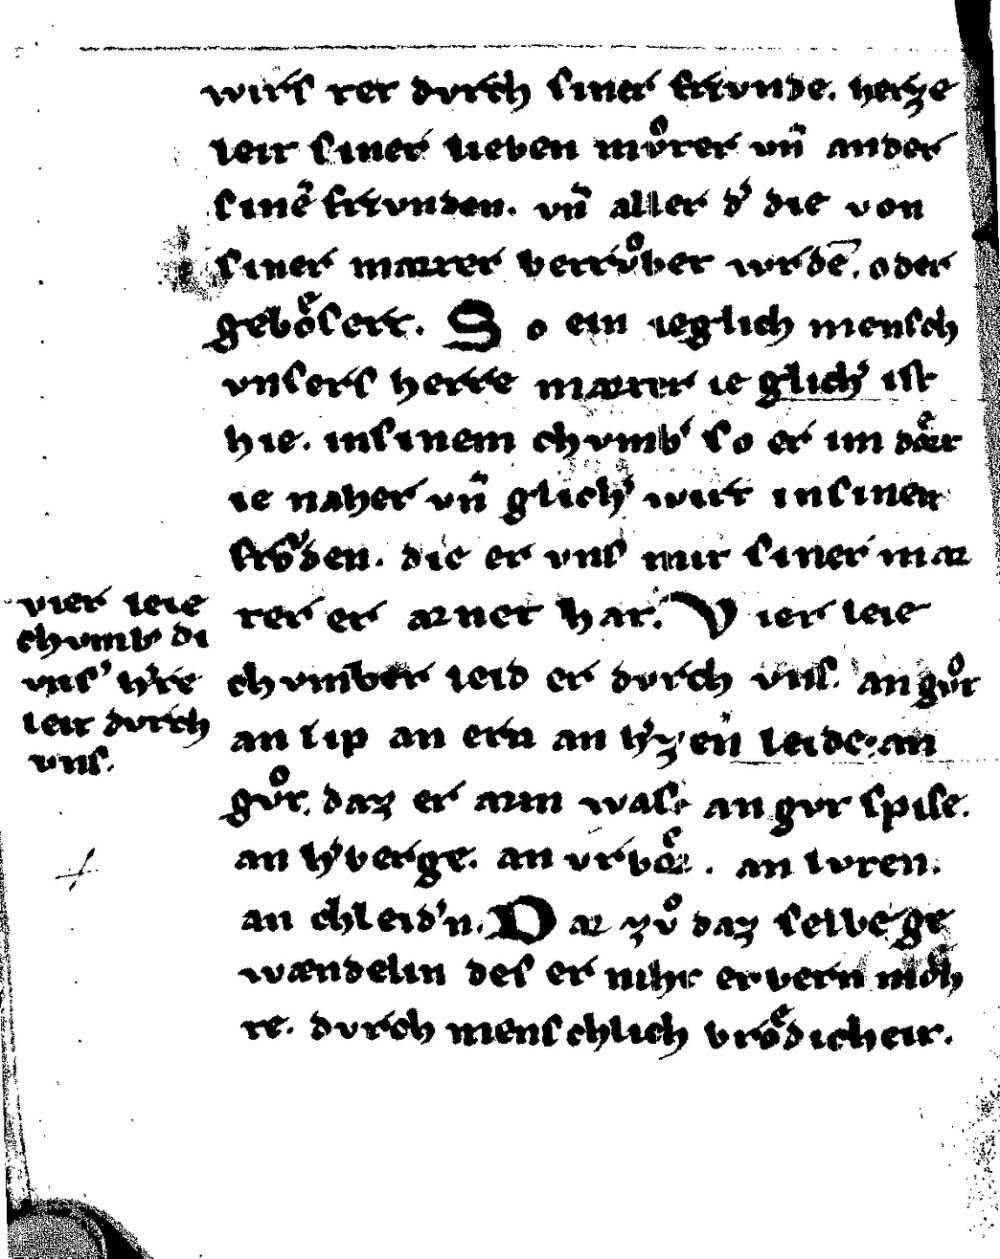 wirſ ter dvrch ſiner frivnde. herze
leit ſiner lieben můter vn̄ ander
ſinē frivnden. vn̄ aller d' die von
ſiner marter betrůbet wrdē. oder
geboͤſert. So ein ieglich menſch
vnſers herre marter ie glich' iſt
hie. inſinem chvmb' ſo er im dar
ie naher vn̄ glich' wirt inſiner
froͮden. die er vns mit ſiner mar
ter er arnet hat. Vier leie
chvmber leid er dvrch vnſ. an gůt
an lip an ern an h'zen leide. an
gůt. daz er arm waſ. an gvt ſpiſe.
an h'berge. an vrboͤr. an lvten.
an chleid'n. Dar zů daz ſelbe ge
wændelin deſ er niht erbern moͤh
te. dvrch menſchlich broͤdicheit.
vier leie
chvmb' di
vnſ' h're
leit dvrch
vnſ.